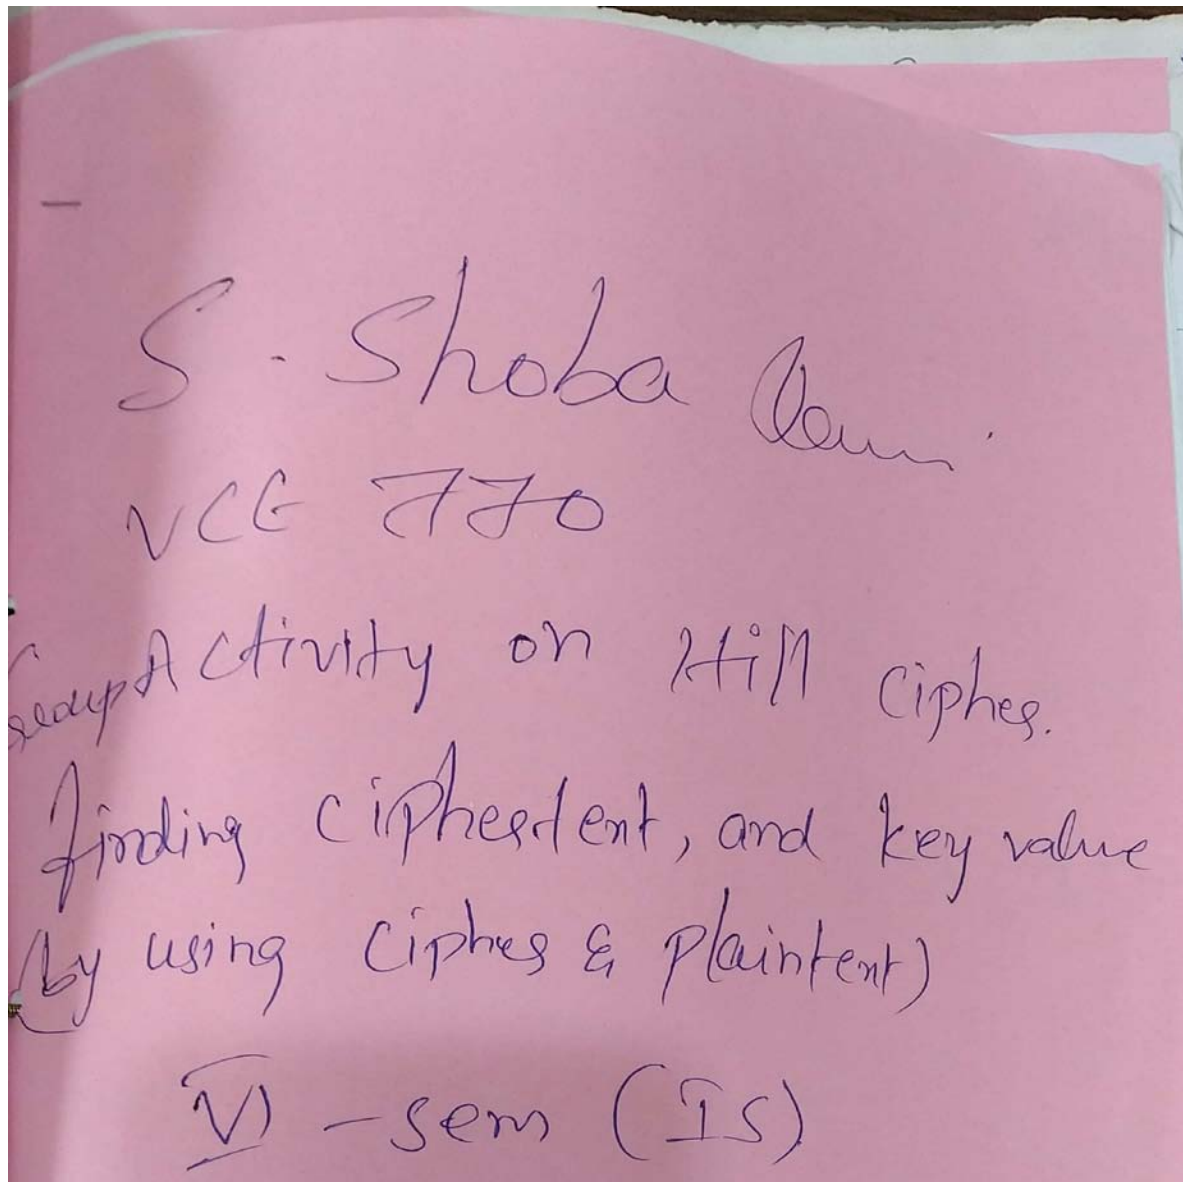 S. Shoba
VCE 770
Group Activity on Hill cipher.
finding ciphertext, and key value
(by using cipher & plaintext)
VI - sem (IS)